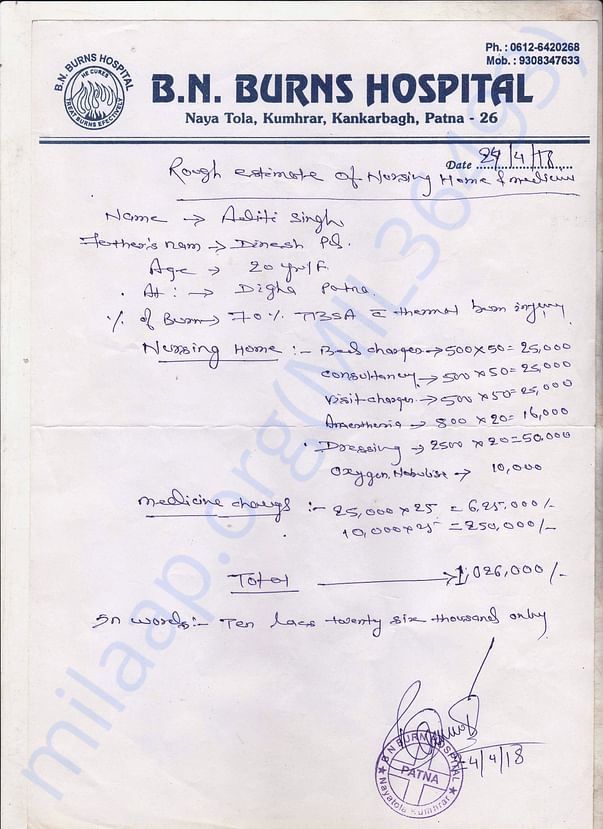 Ph. : 0612-6420268
Mob. : 9308347633
B.N. BURNS HOSPITAL
HE CURES
TREAT BURNS EFECTIVELY
B.N. BURNS HOSPITAL
Naya Tola, Kumhrar, Kankarbagh, Patna - 26
Date 24/4/18
Rough estimate of Nursing Home & medicine
Name → Aditi Singh
Father's nam → Dinesh Pd.
Age → 20 yr/F
At : → Digha Patna.
% of Burn → 70% TBSA c̄ thermal burn injury
Nursing Home :- Bed charges → 500x50= 25,000
consultancy → 500x50= 25,000
visit charges → 500x50= 25,000
Anaesthesia → 800x20= 16,000
Dressing → 2500x20= 50,000
Oxygen, Nebulise → 10,000
medicine :- 25,000x25 = 6,25,000/-
10,000x25 = 250,000/-
Total → 1,026,000/-
In words:- Ten lacs twenty six thousand only
4/4/18
B.N BURN HOSPITAL
PATNA
Nayatola Kumhrar
milaap.org(MIL364495)